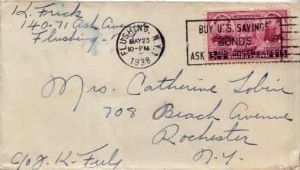 K. Frick
140-71 Ash Ave
Flushing
FLUSHING, N.Y.
MAY 23
10-PM
1938
BUY U.S. SAVINGS
BONDS
ASK YOUR POSTMASTER
Mrs. Catherine Tobin
708 Beach Avenue
Rochester
N.Y.
c/o J. K.